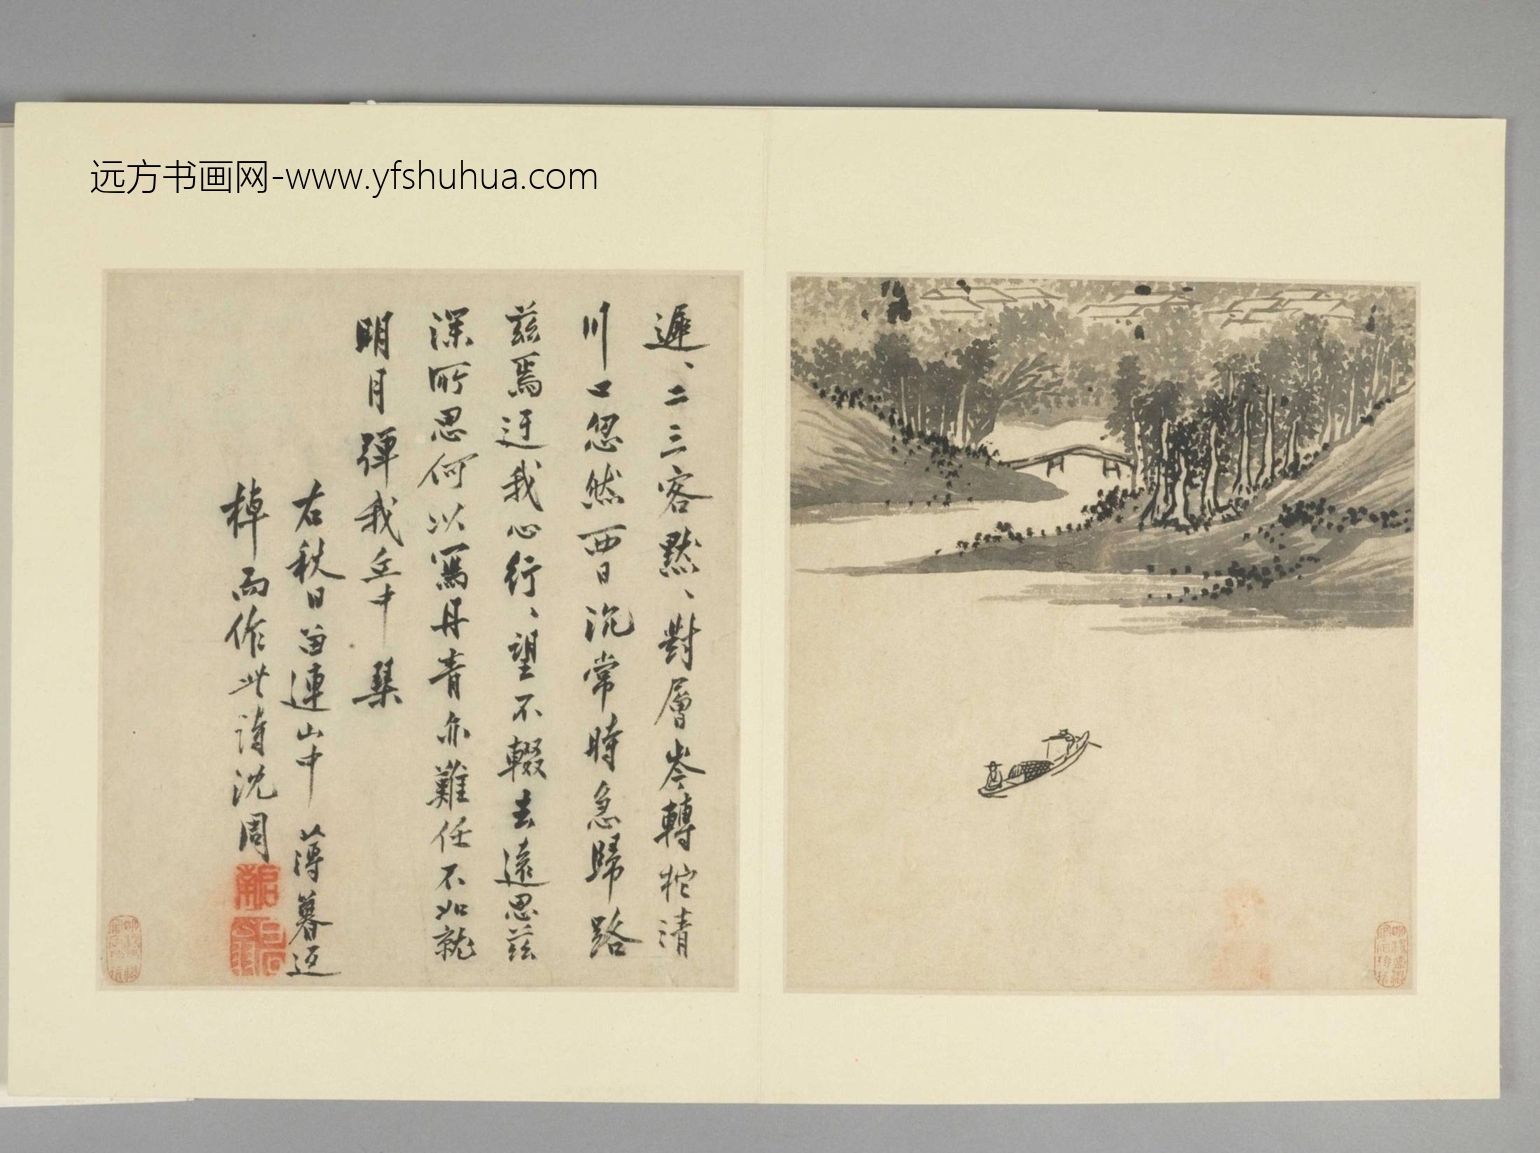 远方书画网-www.yfshuhua.com
遲、二三客默、對層岑轉柁清
川口忽然西日沉常時急歸路
茲焉迂我心行、望不輟去遠思茲
深所思何以寫丹青亦難任不如就
明月彈我丘中琴
右秋日留連山中薄暮迴
棹而作此詩沈周
啟南
白石翁